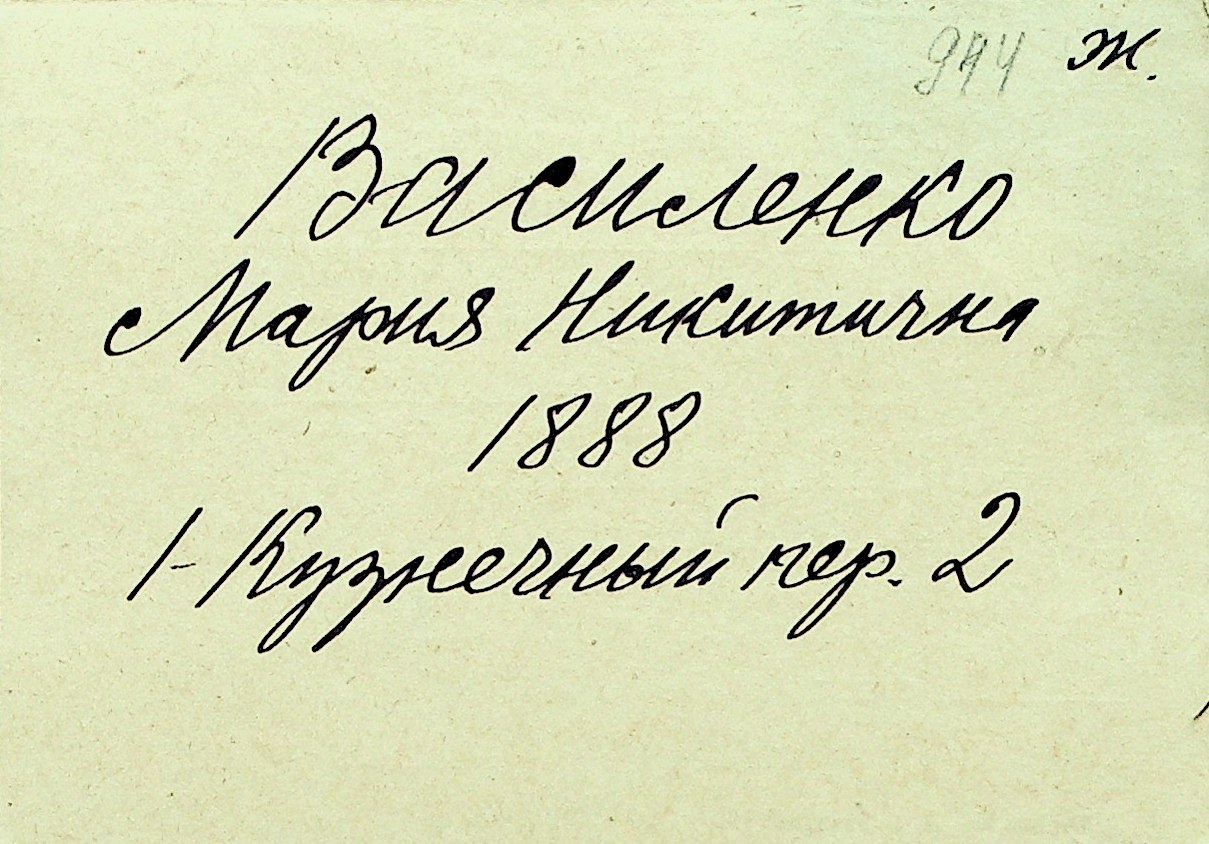 944 ж.
Василенко
Мария Никитична
1888
1-Кузнечный пер. 2